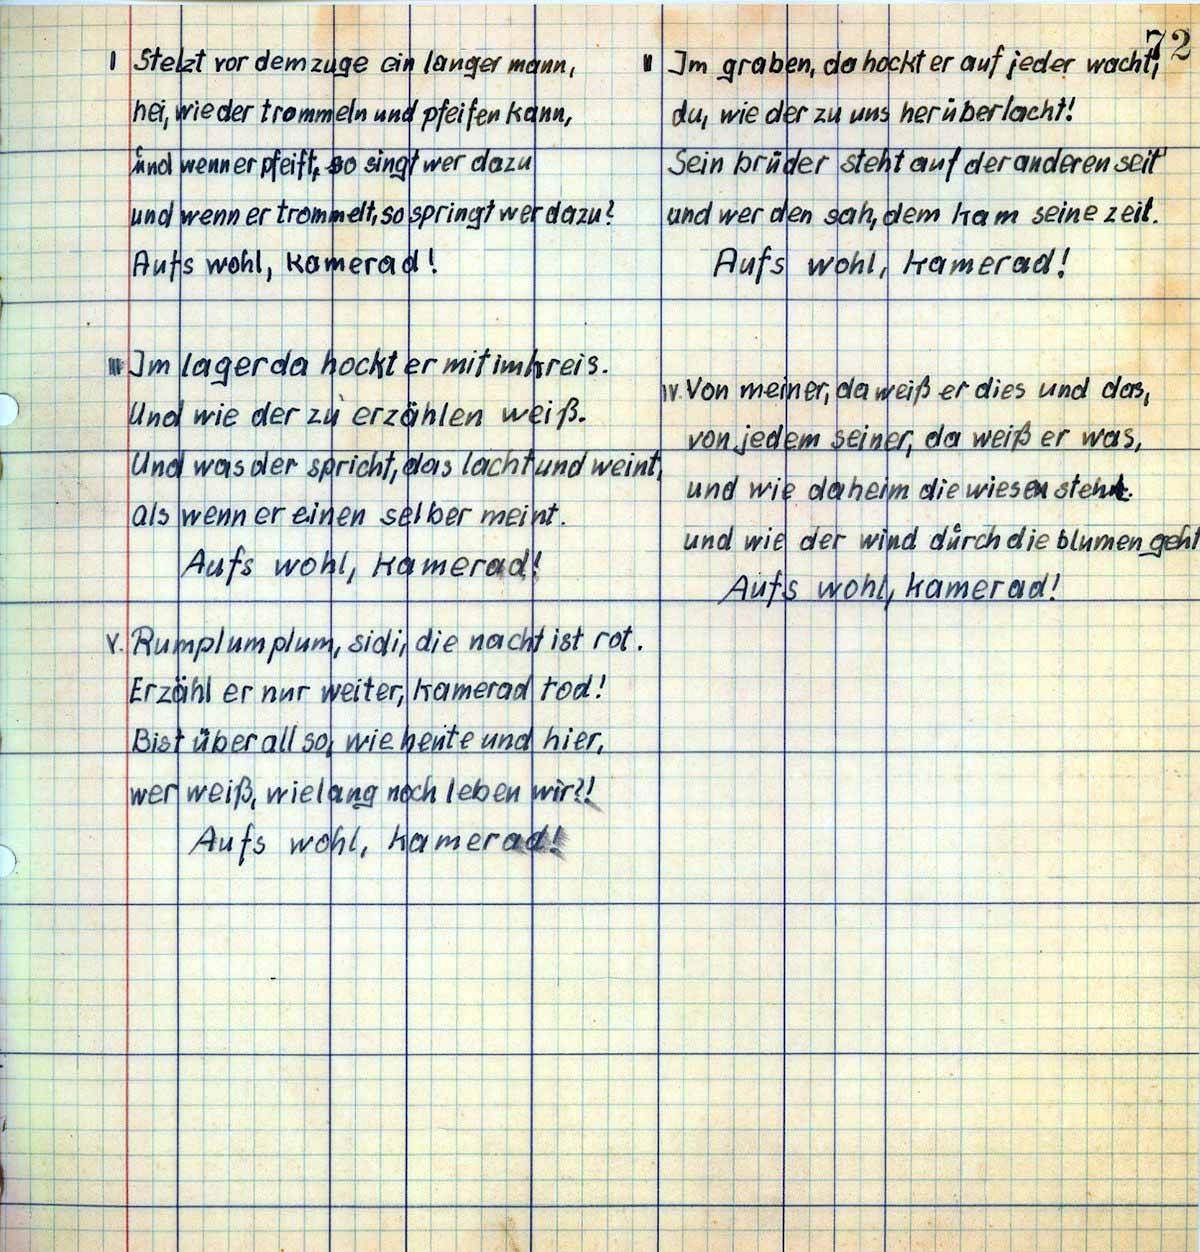 72
I Stelzt vor dem zuge ein langer mann,
hei, wie der trommeln und pfeifen kann,
und wenn er pfeift, so singt wer dazu
und wenn er trommelt, so springt wer dazu?
Aufs wohl, kamerad!
II Im graben, da hockt er auf jeder wacht,
du, wie der zu uns herüberlacht!
Sein brüder steht auf der anderen seit'
und wer den sah, dem kam seine zeit.
Aufs wohl, kamerad!
III Im lager da hockt er mit im kreis.
Und wie der zu erzählen weiß.
Und was der spricht, das lacht und weint,
als wenn er einen selber meint.
Aufs wohl, kamerad!
IV. Von meiner, da weiß er dies und das,
von jedem seiner, da weiß er was,
und wie daheim die wiesen stehn.
und wie der wind durch die blumen geht
Aufs wohl, kamerad!
V. Rumplumplum, sidi, die nacht ist rot.
Erzähl er nur weiter, kamerad tod!
Bist überall so, wie heute und hier,
wer weiß, wie lang noch leben wir?!
Aufs wohl, kamerad!